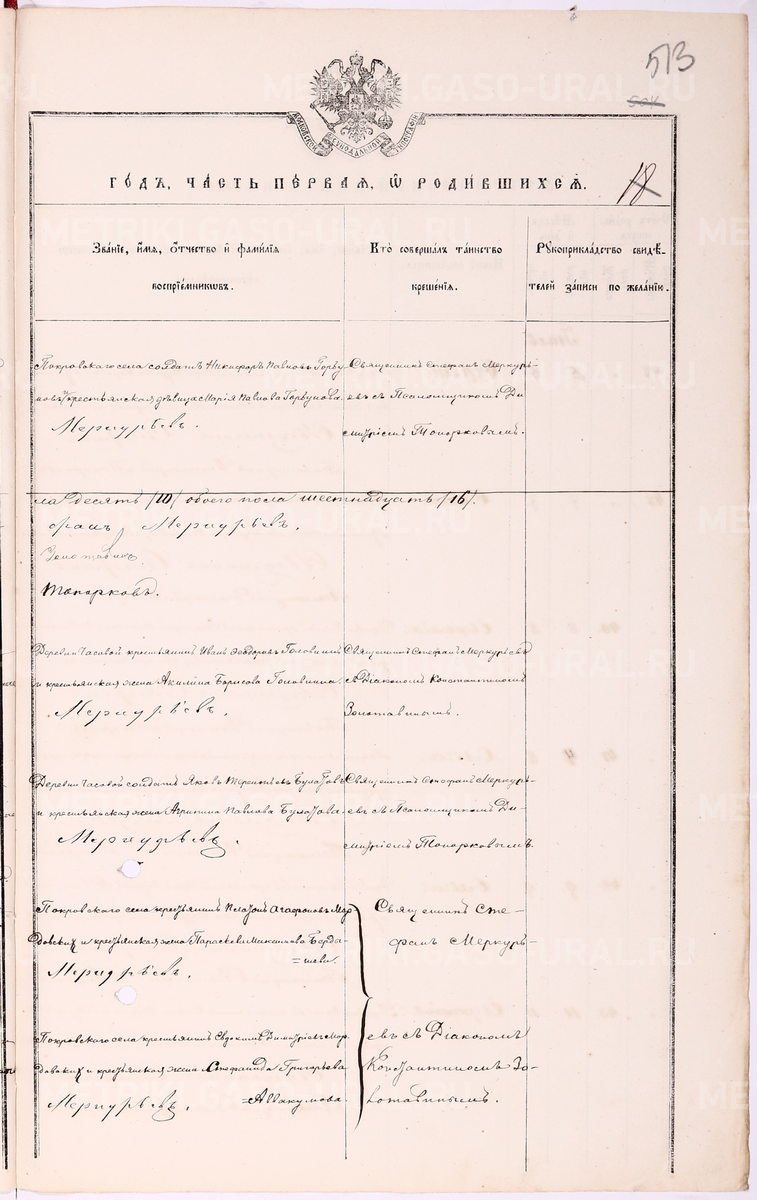 513
МОСКОВСКОЙ СѴНОДАЛЬНОЙ ТИПОГРАФІИ
ГО́ДЪ, ЧА́СТЬ ПЕ́РВАЯ, Ѿ РОДИ́ВШИХСѦ.
18
Зва́нїе, и҆́мѧ, о҆́тчество и҆ фами́лїѧ
воспрїе́мникѡвъ.
Кто̀ соверша́лъ та́инство
креще́нїѧ.
Рꙋкоприкла́дство свидѣ́-
телей за́писи по жела́нїю.
Покровскаго села солдатъ Никифоръ Павловъ Горбу-
новъ и крестьянская дѣвица Марія Павлова Горбунова.
Меркурьевъ.
Священникъ Стефанъ Меркурь-
евъ съ Псаломщикомъ Ди-
митріемъ Топорковымъ.
ла десять /10/ обоего пола шестнадцать /16/.
фанъ Меркурьевъ.
Золотавинъ
Топорковъ.
Деревни Часовой крестьянинъ Иванъ Ѳеодоровъ Головинъ
и крестьянская жена Акилина Борисова Головина.
Меркурьевъ.
Священникъ Стефанъ Меркурьевъ
съ Діакономъ Константиномъ
Золотавинымъ.
Деревни Часовой солдатъ Яковъ Терентьевъ Булатовъ
и крестьянская жена Агрипина Павлова Булатова.
Меркурьевъ.
Священникъ Стефанъ Меркурь-
евъ съ Псаломщикомъ Ди-
митріемъ Топорковымъ.
Покровскаго села крестьянинъ Платонъ Агафоновъ Мор-
довскихъ и крестьянская жена Параскева Максимова Берды-
=шева.
Меркурьевъ.
Священникъ Сте-
фанъ Меркурь-
Покровскаго села крестьянинъ Евдокимъ Димитріевъ Мор-
довскихъ и крестьянская жена Стефанида Григорьева
=Аввакумова.
Меркурьевъ.
евъ съ Діакономъ
Константиномъ Зо-
лотавинымъ.